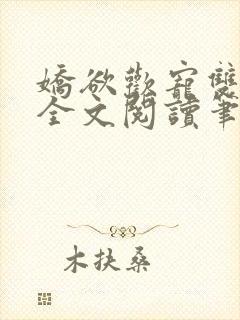 嬌欲歡寵雙
全文閱讀筆
木扶桑